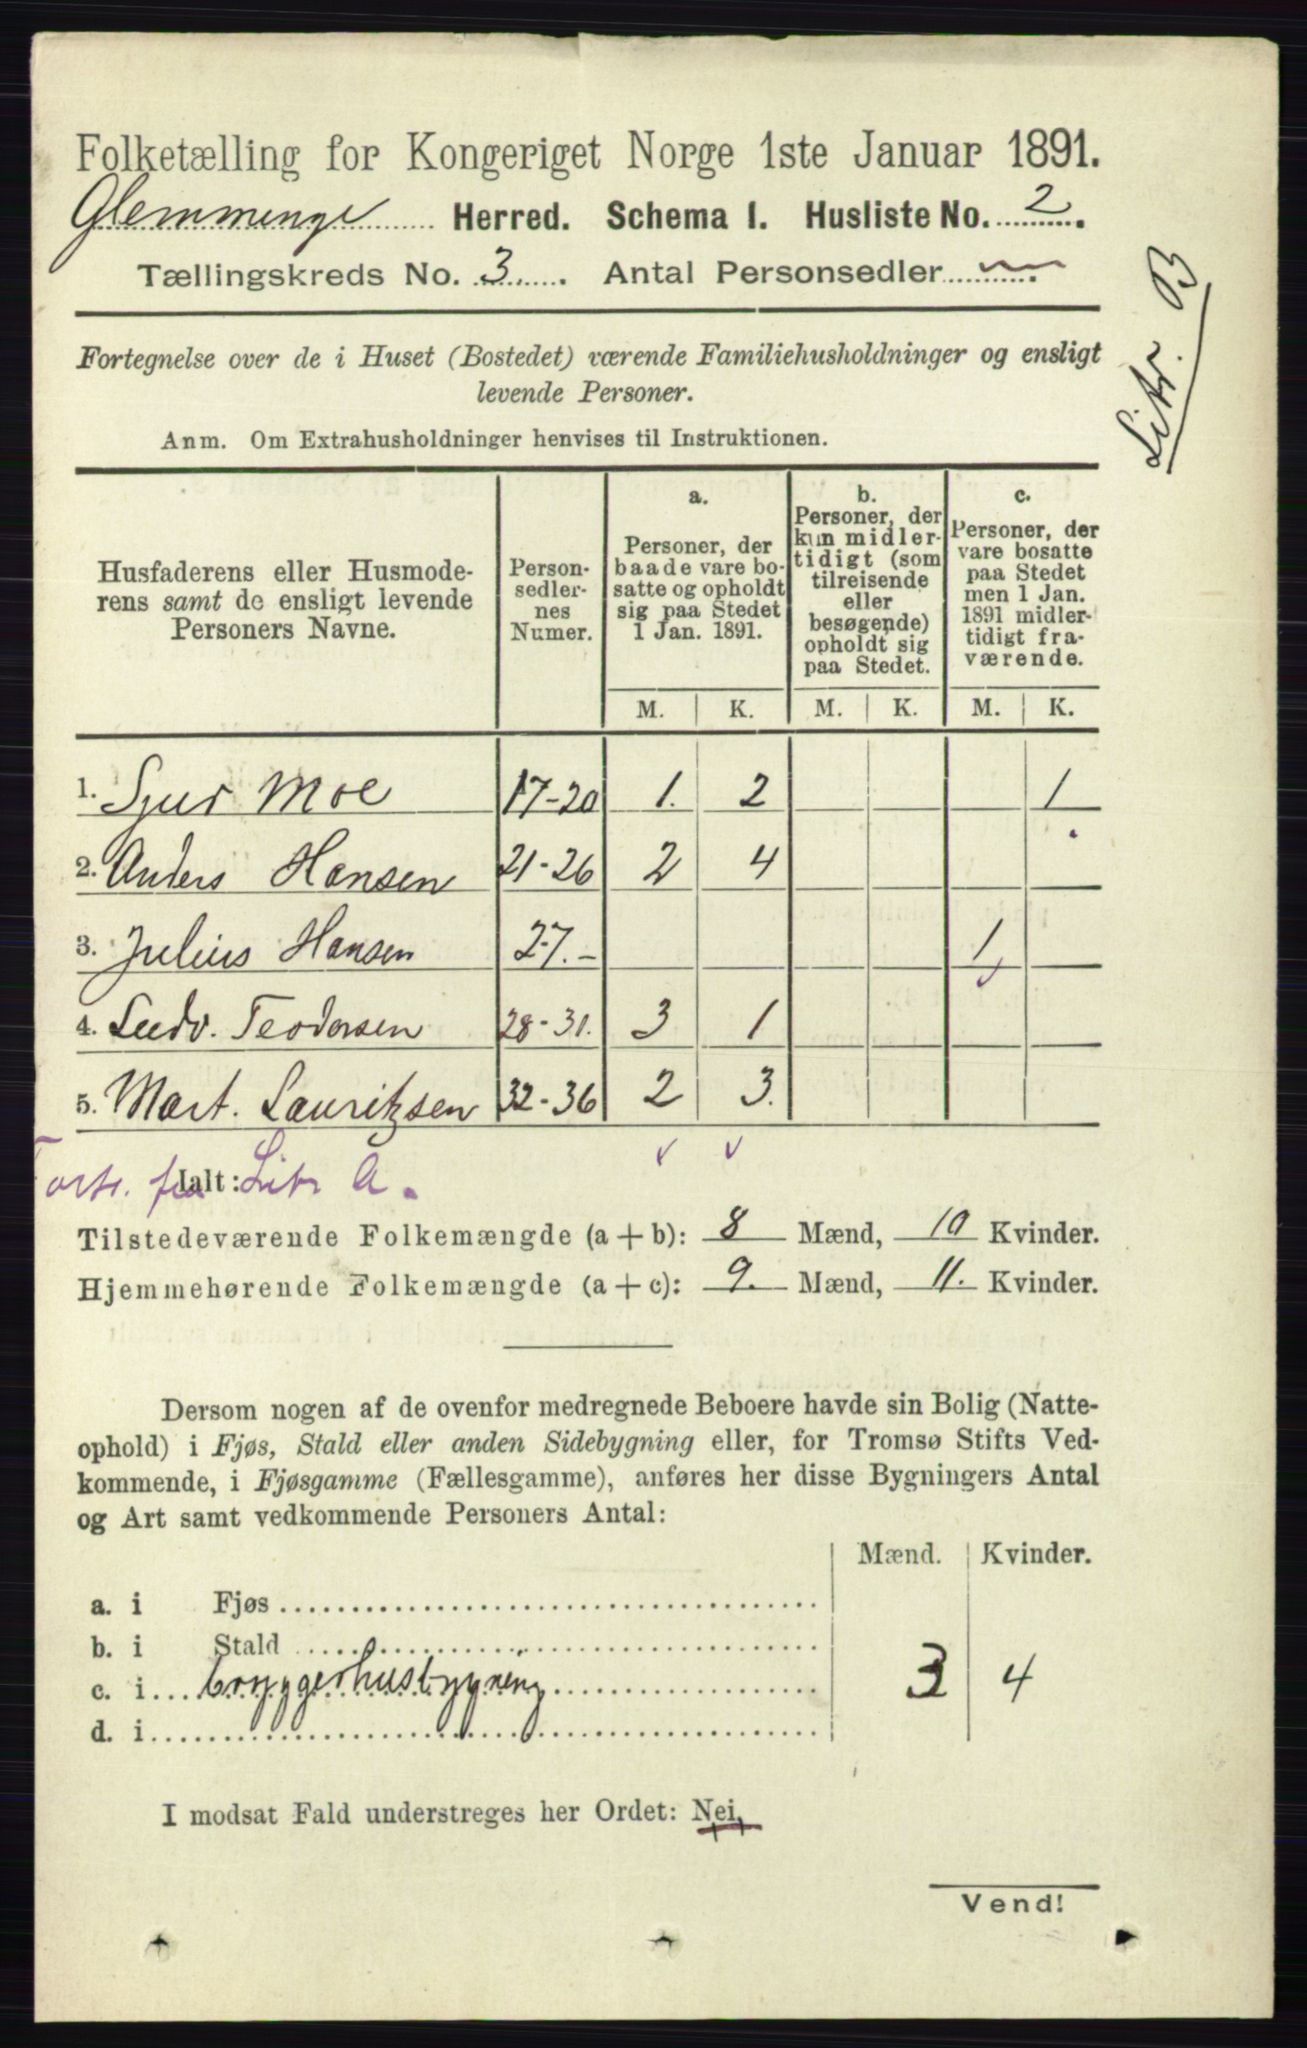 Folketælling for Kongeriget Norge 1ste Januar 1891.
Glemminge Herred. Schema I. Husliste No. 2.
Tællingskreds No. 3. Antal Personsedler
Litr. B
Fortegnelse over de i Huset (Bostedet) værende Familiehusholdninger og ensligt
levende Personer.
Anm. Om Extrahusholdninger henvises til Instruktionen.
Husfaderens eller Husmode-
rens samt de ensligt levende
Personers Navne.
Person-
sedler-
nes
Numer.
a.
Personer, der
baade vare bo-
satte og opholdt
sig paa Stedet
1 Jan. 1891.
b.
Personer, der
kun midler-
tidigt (som
tilreisende
eller
besøgende)
opholdt sig
paa Stedet.
c.
Personer, der
vare bosatte
paa Stedet
men 1 Jan.
1891 midler-
tidigt fra-
værende.
M. K. M. K. M. K.
1. Sjur Moe 17-20 1. 2 1
2. Anders Hansen 21-26 2 4
3. Julius Hansen 27.- 1
4. Ludv. Teodorsen 28-31. 3 1
5. Mart. Lauritzsen 32-36 2 3.
Forts. fra Litr A.
Ialt:
Tilstedeværende Folkemængde (a + b): 8 Mænd, 10 Kvinder.
Hjemmehørende Folkemængde (a + c): 9. Mænd, 11. Kvinder.
Dersom nogen af de ovenfor medregnede Beboere havde sin Bolig (Natte-
ophold) i Fjøs, Stald eller anden Sidebygning eller, for Tromsø Stifts Ved-
kommende, i Fjøsgamme (Fællesgamme), anføres her disse Bygningers Antal
og Art samt vedkommende Personers Antal:
Mænd. Kvinder.
a. i Fjøs
b. i Stald
c. i bryggerhusbygning 3 4
d. i
I modsat Fald understreges her Ordet: Nei.
Vend!